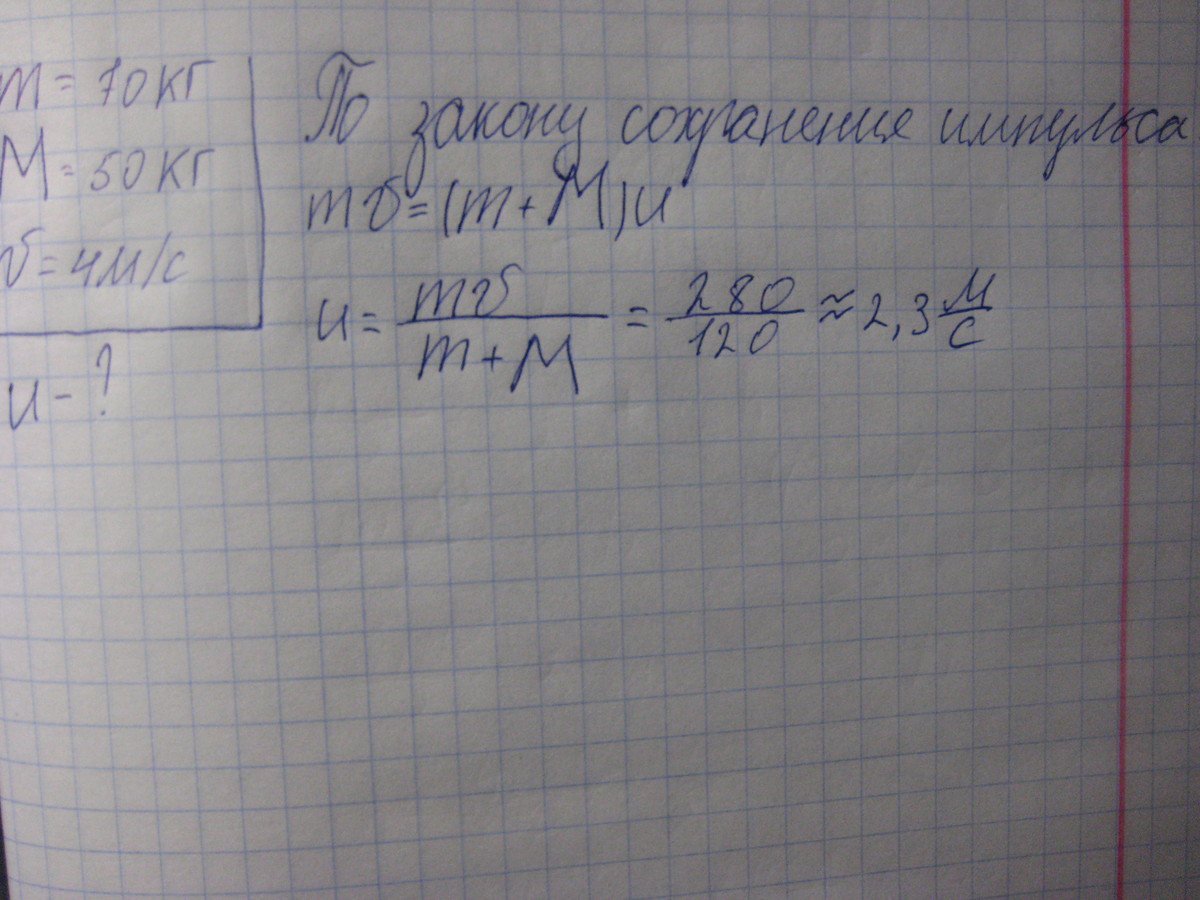 m = 70 кг
M = 50 кг
v = 4 м/с
u - ?
По закону сохранение импульса
mv = (m + M)u
u = mv / m + M = 280 / 120 ≈ 2,3 м/с